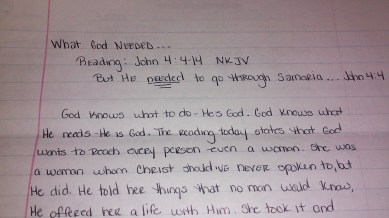 What God NEEDED...
Reading: John 4:4-14 NKJV
But He needed to go through Samaria... John 4:4
God knows what to do - He's God. God knows what
He needs - He is God. The reading today states that God
wants to reach every person - even a woman. She was
a woman whom Christ should've never spoken to, but
He did. He told her things that no man would know,
He offered her a life with Him. She took it and